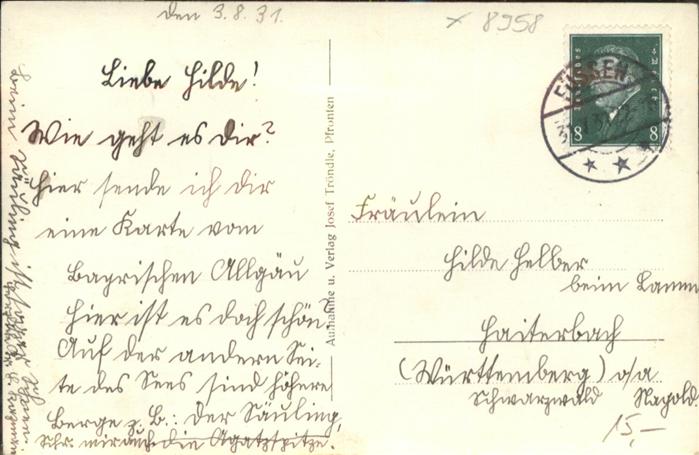 den 3.8.31.
× 8958
Liebe Hilde!
Wie geht es Dir?
Hier sende ich dir
eine Karte vom
Bayrischen Allgäu
Hier ist es doch schön?
Auf der andern Sei-
te des Sees sind höhere
Berge z. B.: Der Säuling,
Schr. mir auch die Agatzspitze.
Aufnahme u. Verlag Josef Tröndle, Pfronten
FÜSSEN
8 8
Fräulein
Hilde Helber
beim Lamm
Haiterbach
(Württemberg) o/a
Schwarzwald Nagold
15,-